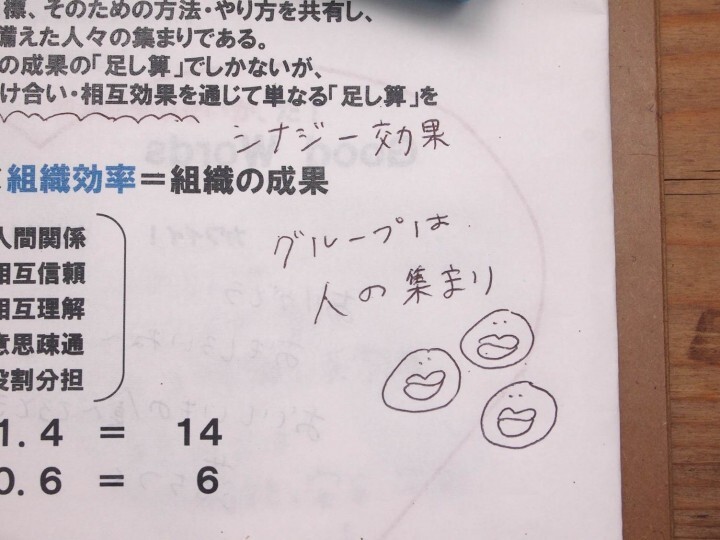 標、そのための方法・やり方を共有し、
備えた人々の集まりである。
の成果の「足し算」でしかないが、
け合い・相互効果を通じて単なる「足し算」を
シナジー効果
組織効率＝組織の成果
人間関係
相互信頼
相互理解
意思疎通
役割分担
グループは
人の集まり
1.4 = 14
0.6 = 6